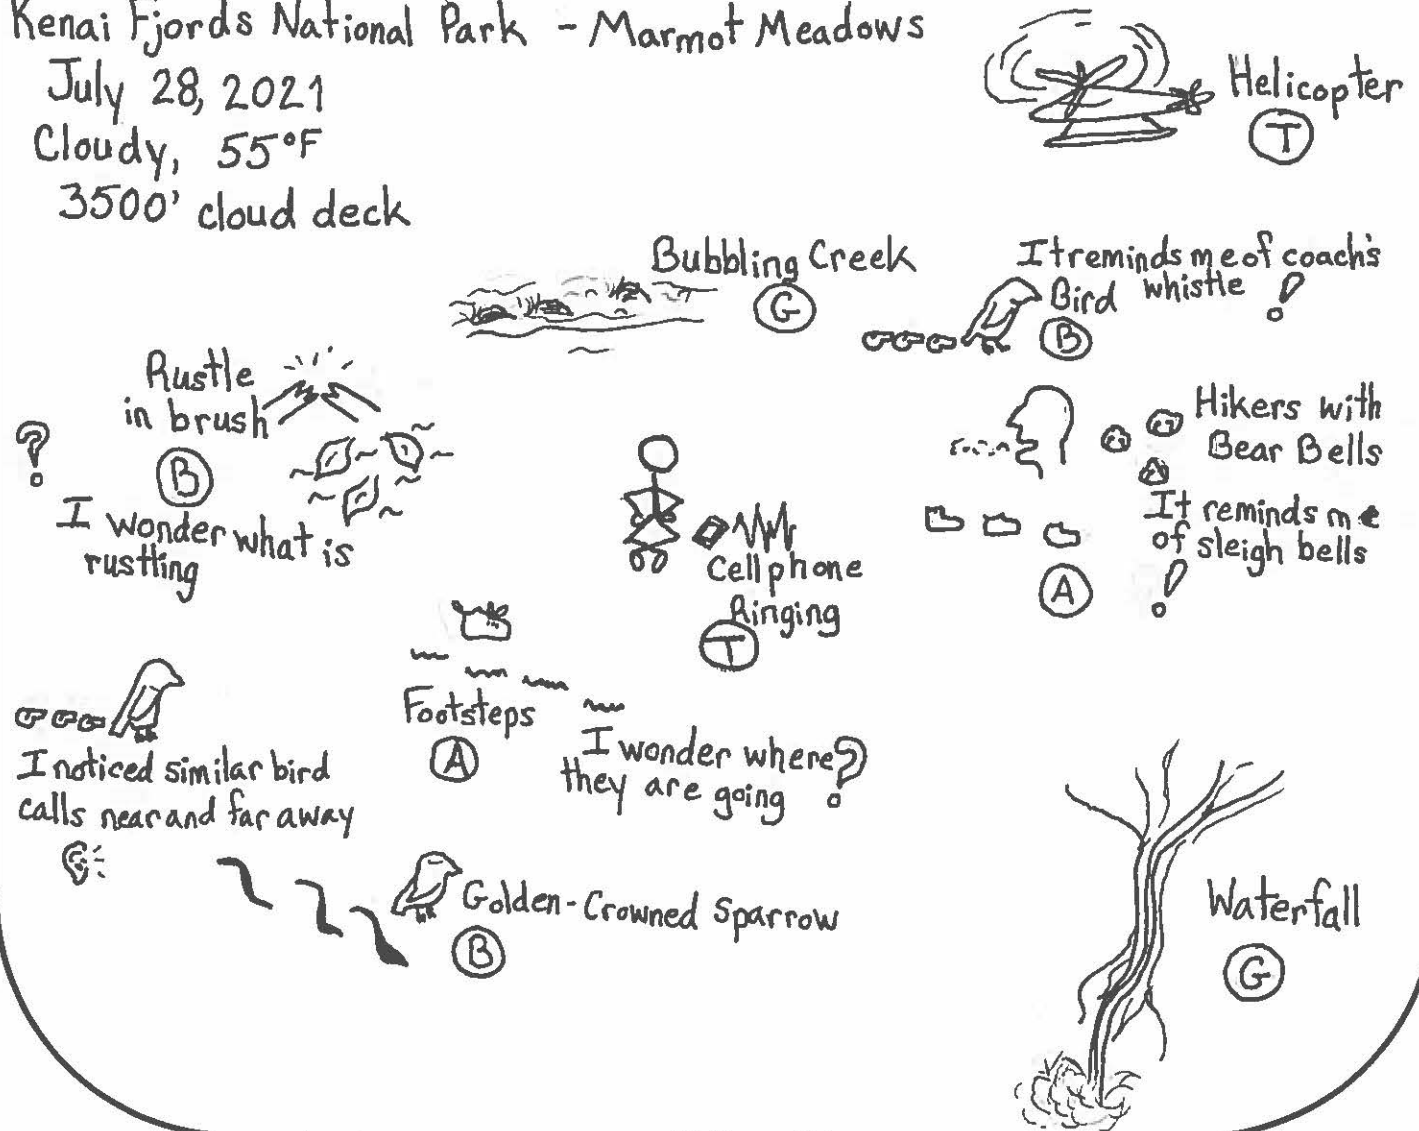 Kenai Fjords National Park - Marmot Meadows
July 28, 2021
Cloudy, 55°F
3500' cloud deck
Helicopter
T
Bubbling Creek
G
It reminds me of coach's
whistle !
Bird
B
Rustle
in brush
B
?
I wonder what is
rustling
Cellphone
Ringing
T
Hikers with
Bear Bells
It reminds me
of sleigh bells
!
A
Footsteps
A
I wonder where
they are going
?
I noticed similar bird
calls near and far away
Golden-Crowned Sparrow
B
Waterfall
G